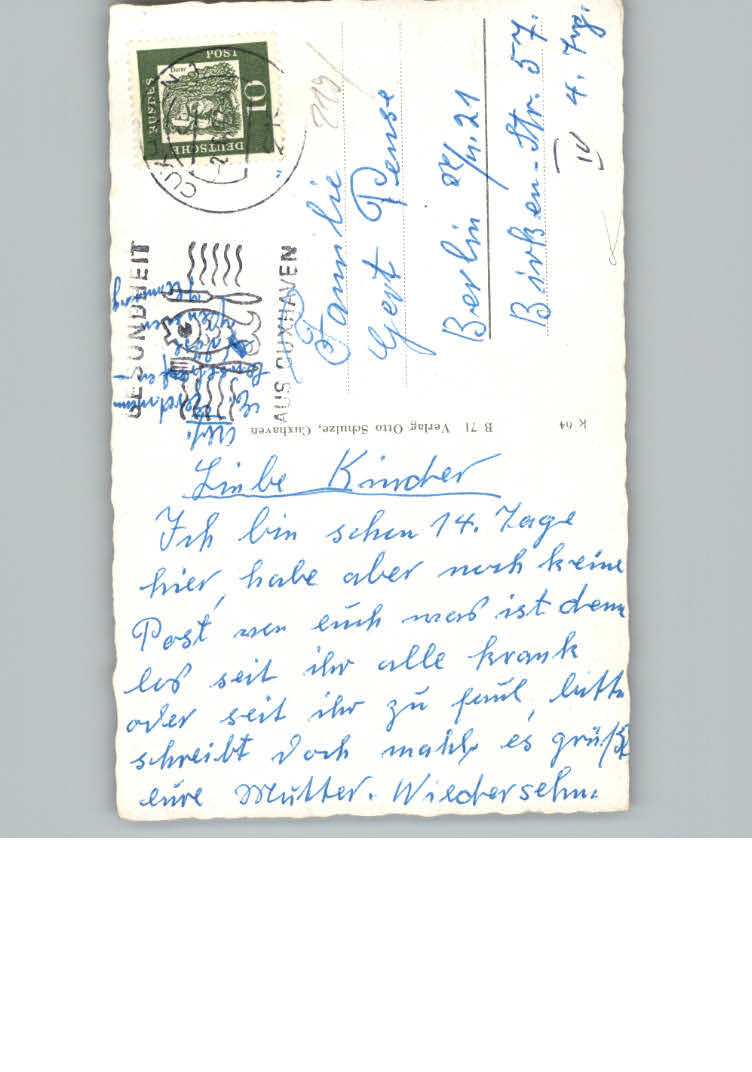 Liebe Kinder
Ich bin schon 14. Tage
hier, habe aber noch keine
Post von euch was ist denn
los seit ihr alle krank
oder seit ihr zu faul, bitte
schreibt doch mahl es grüßt
eure Mutter. Wiedersehn.
Familie
Gert Pense
Berlin 21
Birken-Str. 57.
IV 4. Aufg.
Abs.
DEUTSCHE
BUNDES
POST
10
Dürer
GESUNDHEIT
AUS CUXHAVEN
K 64 B 71 Verlag Otto Schulze, Cuxhaven